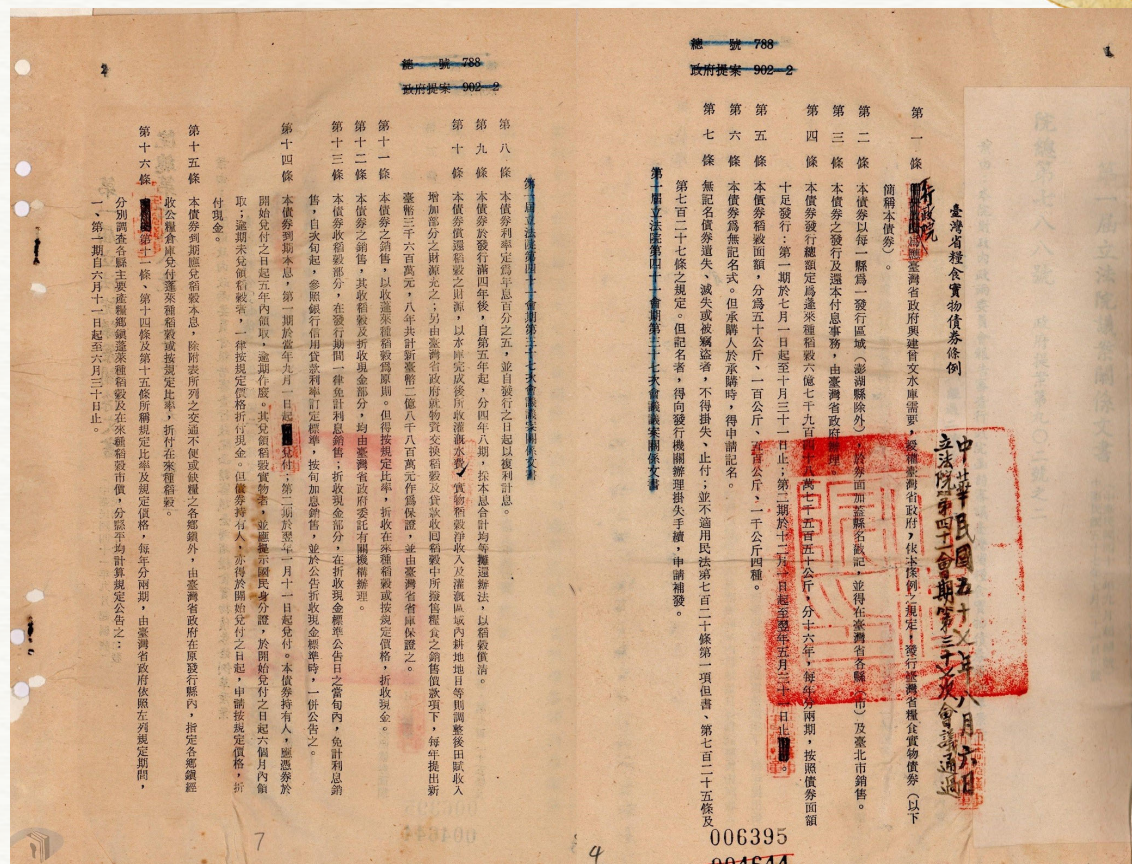 1
總　號 788
政府提案 902—2
中華民國五十七年八月六日
立法院第四十一會期第三十七次會議通過
臺灣省糧食實物債券條例
第一條　行政院為應臺灣省政府興建曾文水庫需要，授權臺灣省政府，依本條例之規定，發行臺灣省糧食實物債券（以下
簡稱本債券）。
第二條　本債券以每一縣為一發行區域（澎湖縣除外），於券面加蓋縣名戳記，並得在臺灣省各縣（市）及臺北市銷售。
第三條　本債券之發行及還本付息事務，由臺灣省政府辦理。
第四條　本債券發行總額定為蓬來種稻穀六億七千九百四十八萬七千五百五十公斤，分十六年，每年分兩期，按照債券面額
十足發行：第一期於七月一日起至十月三十一日止；第二期於十二月一日起至翌年五月三十一日止。
第五條　本債券稻穀面額，分為五十公斤、一百公斤、五百公斤、一千公斤四種。
第六條　本債券為無記名式。但承購人於承購時，得申請記名。
第七條　無記名債券遺失、滅失或被竊盜者，不得掛失、止付；並不適用民法第七百二十條第一項但書、第七百二十五條及
第七百二十七條之規定。但記名者，得向發行機關辦理掛失手續，申請補發。
第一屆立法院第四十一會期第三十七次會議議案關係文書
006395
4
2
總　號 788
政府提案 902—2
第一屆立法院第四十一會期第三十七次會議議案關係文書
第八條　本債券利率定為年息百分之五，並自發行之日起以複利計息。
第九條　本債券於發行滿四年後，自第五年起，分四年八期，採本息合計均等攤還辦法，以稻穀償清。
第十條　本債券償還稻穀之財源，以本庫完成後所收灌溉水費，實物稻穀淨收入及灌溉區域內耕地地目等則調整後田賦收入
增加部分之財源充之；另由臺灣省政府就物資交換稻穀及貸款收回稻穀中所撥售糧食之銷售價款項下，每年提出新
臺幣三千六百萬元，八年共計新臺幣二億八千八百萬元作為保證，並由臺灣省省庫保證之。
第十一條　本債券之銷售，以收蓬來種稻穀為原則。但得按規定比率，折收在來種稻穀或按規定價格，折收現金。
第十二條　本債券之銷售，其收稻穀及折收現金部分，均由臺灣省政府委託有關機構辦理。
第十三條　本債券收稻穀部分，在發行期間一律免計利息銷售；折收現金部分，在折收現金標準公告日之當旬內，免計利息銷
售，自次旬起，參照銀行信用貸款利率訂定標準，按旬加息銷售，並於公告折收現金標準時，一併公告之。
第十四條　本債券到期本息，第一期於當年九月一日起兌付；第二期於翌年一月十一日起兌付。本債券持有人，應憑券於
開始兌付之日起五年內領取，逾期作廢。其兌領稻穀實物者，並應提示國民身分證，於開始兌付之日起六個月內領
取；逾期未兌領稻穀者，一律按規定價格折付現金。但債券持有人，亦得於開始兌付之日起，申請按規定價格，折
付現金。
第十五條　本債券到期應兌稻穀本息，除附表所列之交通不便或缺糧之各鄉鎮外，由臺灣省政府在原發行縣內，指定各鄉鎮經
收公糧倉庫兌付蓬來種稻穀或按規定比率，折付在來種稻穀。
第十六條　第十一條、第十四條及第十五條所稱規定比率及規定價格，每年分兩期，由臺灣省政府依照左列規定期間，
分別調查各縣主要產糧鄉鎮蓬來種稻穀及在來種稻穀市價，分縣平均計算規定公告之：
一、第一期自六月十一日起至六月三十日止。
7